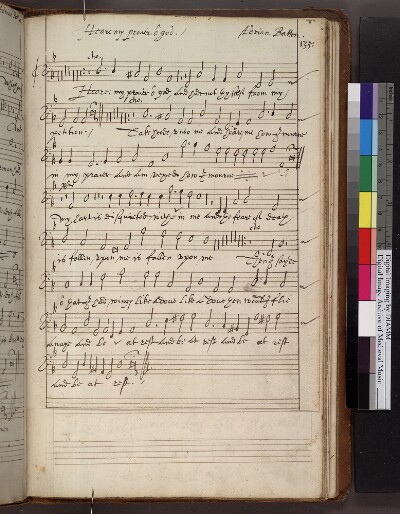 Hear my prayer ô god. / Adrian Batten
135
cho:
Heare my praier ô god and hide not thy self from my
cho:
petition: / Take heede unto me and heare me how I mourne
in my praier and am vexed how I mourne
My hart is disquieted within me and the feare of death
cho
is fallen upon me is fallen upon me
ô that I had wings like a Dove like a Dove then would I flie
away and be at rest and be at rest and be at rest
and be at rest.
Digital Imaging by DIAMM
Digital Image Archive of Medieval Music